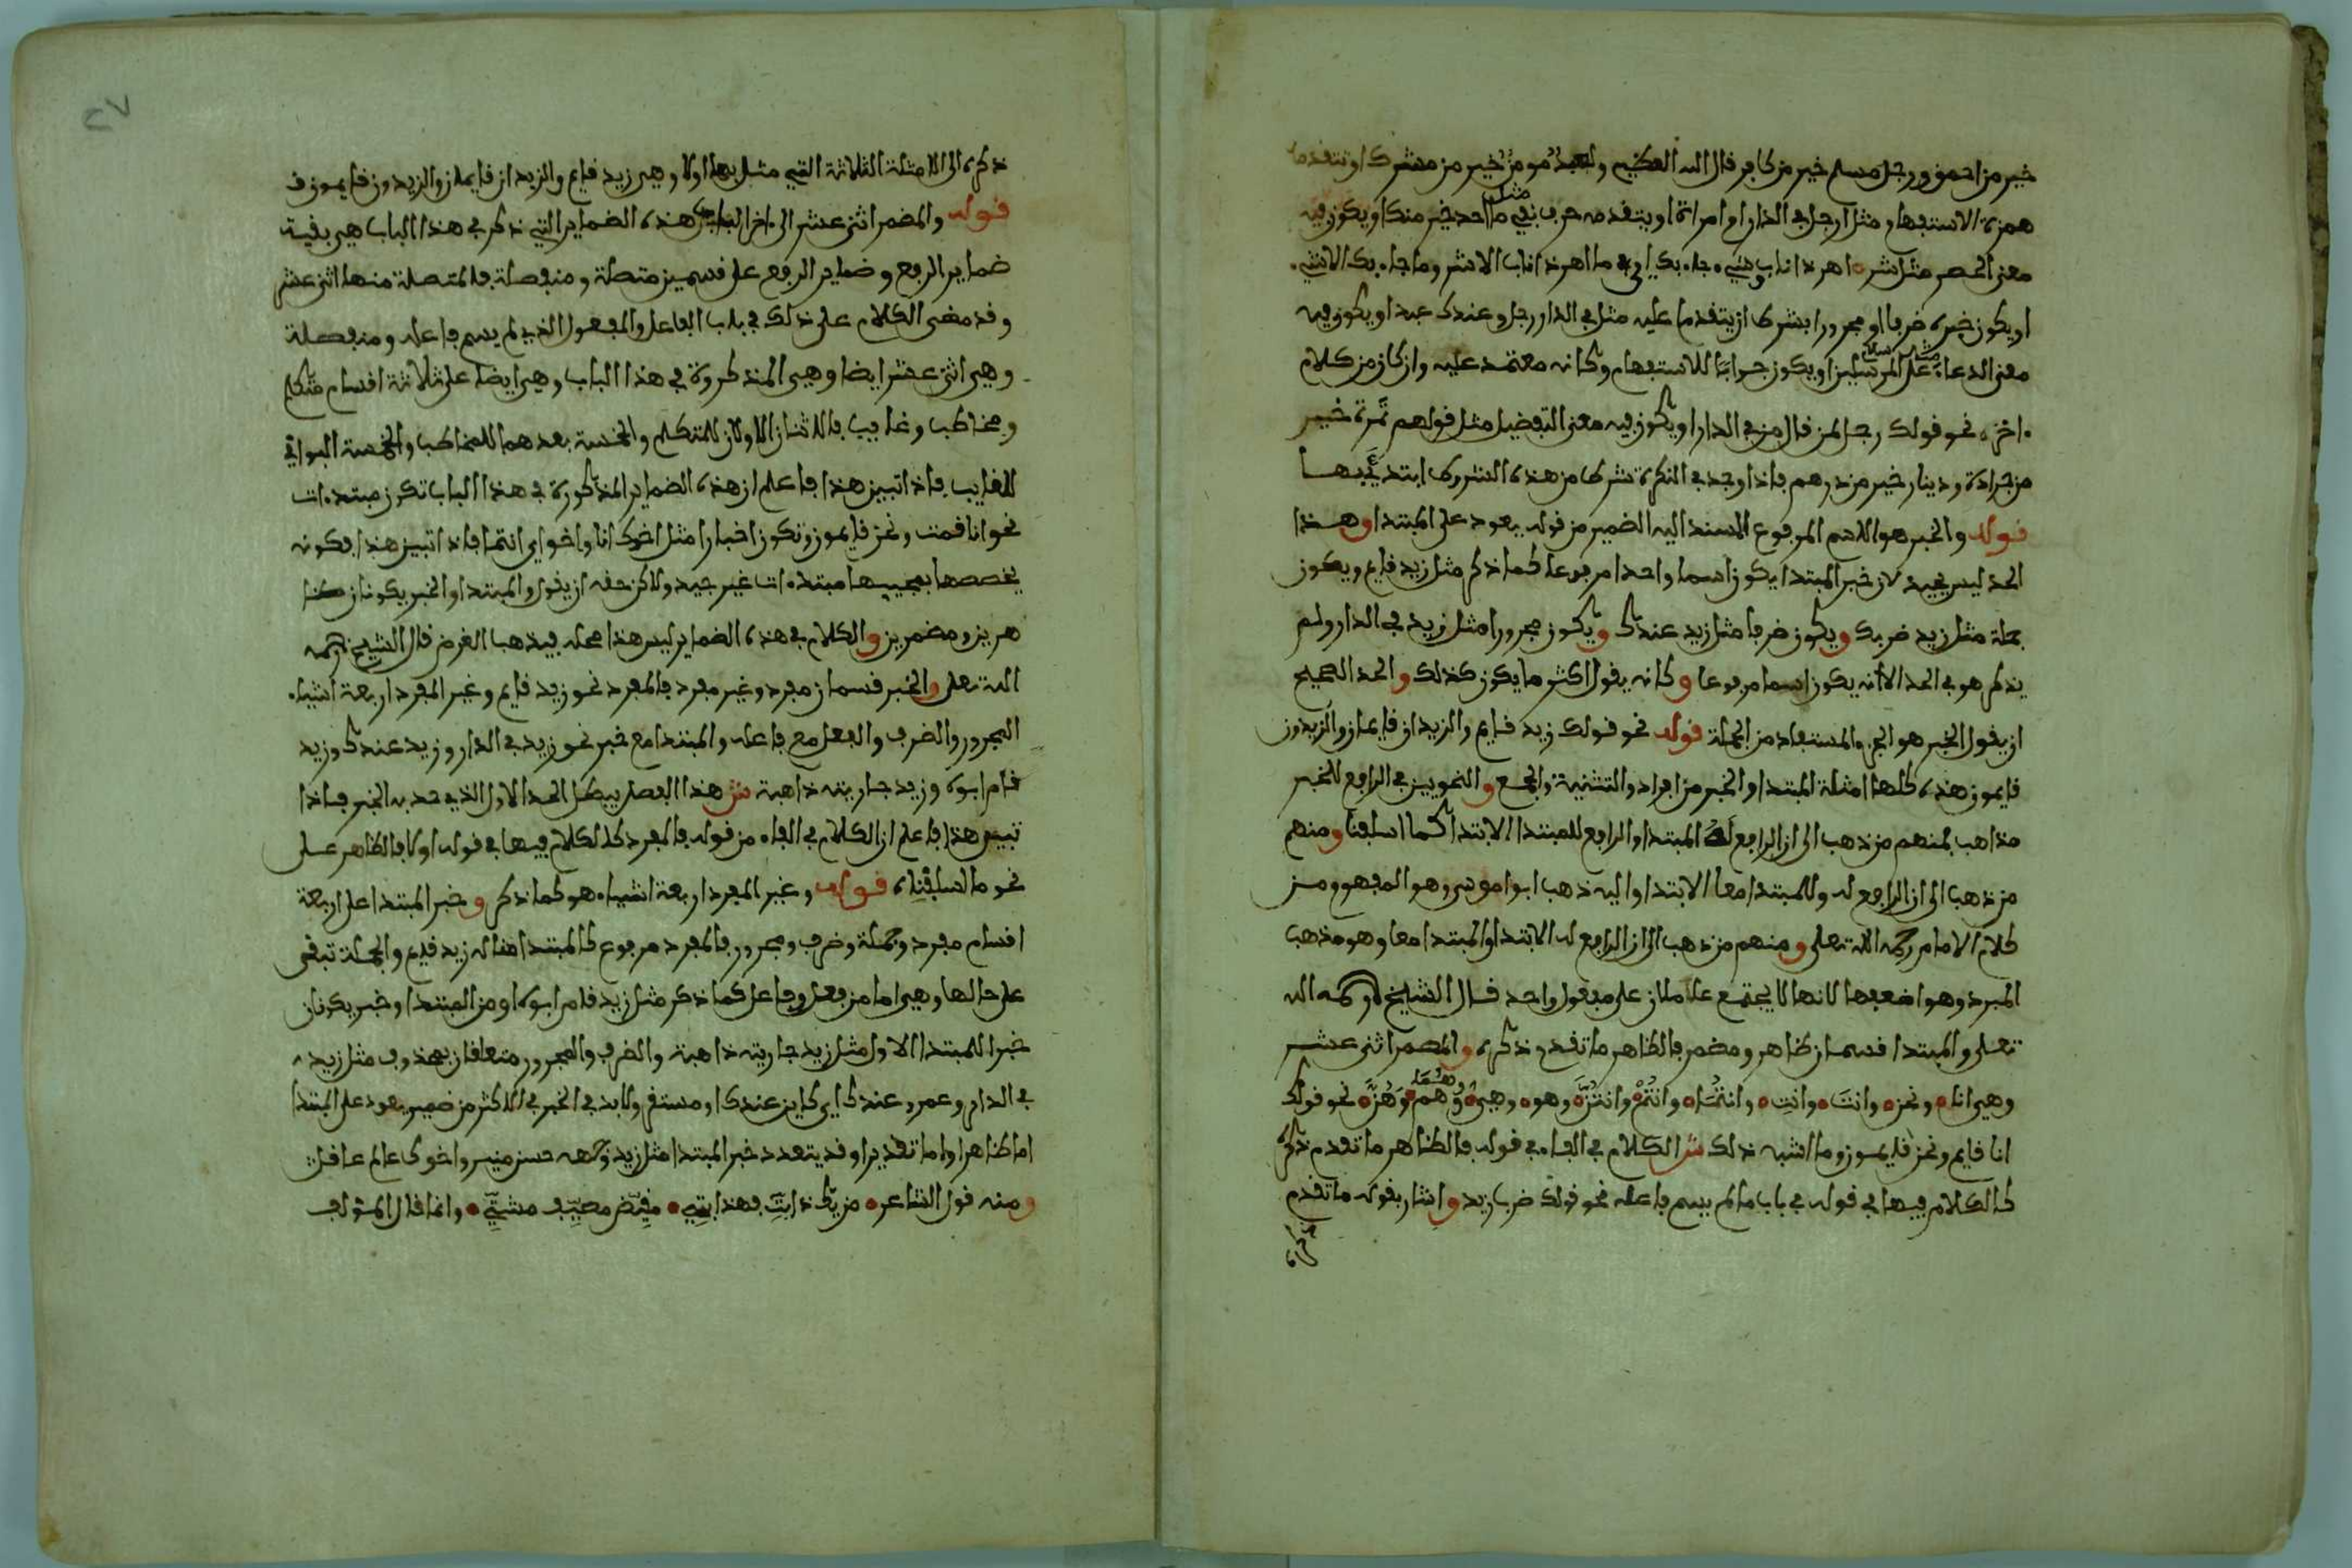 خير من احمق ورجل مسلم خير من كافر قال الله العظيم ولعبد مومن خير من مشرك او تتقدمه
همزة الاستفهام مثل ارجل في الدار ام امراة او يتقدمه حرف نفي مثل ما احد خير منك او يكون فيه
معنى الحصر مثل شر اهر ذا ناب وشيء جاء بك اي ما اهر ذا ناب الا شر وما جاء بك الا شيء
او يكون خبره ظرفا او مجرورا بشرط ان يتقدما عليه مثل في الدار رجل وعندك عبد او يكون فيه
معنى الدعاء مثل سلام على المرسلين او يكون جوابا للاستفهام وكانه معتمد عليه وان كان من كلام
اخر نحو قولك رجل لمن قال من في الدار او يكون فيه معنى التفضيل مثل قولهم تمرة خير
من جرادة ودينار خير من درهم فاذا وجد في النكرة شرط من هذه الشروط ابتدئ بها
قوله والخبر هو الاسم المرفوع المسند اليه الضمير من قوله يعود على المبتدا وهذا
الحد ليس بجيد لان خبر المبتدا يكون اسما واحدا مرفوعا كما ذكر مثل زيد قايم ويكون
جملة مثل زيد ضربك ويكون ظرفا مثل زيد عندك ويكون مجرورا مثل زيد في الدار ولم
يذكر هو في الحد الا انه يكون اسما مرفوعا وكانه يقول اكثر ما يكون كذلك والحد الصحيح
ان يقول الخبر هو الجزء المستفاد من الجملة قوله نحو قولك زيد قايم والزيدان قايمان والزيدون
قايمون هذه كلها امثلة المبتدا والخبر من افراد والتثنية والجمع وللنحويين في الرافع للخبر
مذاهب فمنهم من ذهب الى ان الرافع له المبتدا والرافع للمبتدا الابتدا كما اسلفنا ومنهم
من ذهب الى ان الرافع له وللمبتدا معا الابتدا واليه ذهب ابوا موسى وهو المفهوم من
كلام الامام رحمه الله تعلى ومنهم من ذهب الى ان الرافع له الابتدا والمبتدا معا وهو مذهب
المبرد وهو اضعفها لانها لا يجتمع عاملان على معمول واحد قال الشيخ رحمه الله
تعلى والمبتدا قسمان ظاهر ومضمر فالظاهر ما تقدم ذكره والمضمر اثنى عشر
وهي انا ونحن وانتَ وانتِ وانتما وانتم وانتن وهو وهي وهما وهم وهن نحو قولك
انا قايم ونحن قايمون وما اشبه ذلك ش الكلام في الفاء في قوله فالظاهر ما تقدم ذكره
كالكلام فيها في قوله في باب ما لم يسم فاعله نحو قولك ضرب زيد واشار بقوله ما تقدم
ذكره
ذكره الى الامثلة الثلاثة التي مثل بها اولا وهي زيد قايم والزيدان قايمان والزيدون قايمون
قوله والمضمر اثنى عشر الى اخر الباب هذه الضماير التي ذكر في هذا الباب هي بقية
ضماير الرفع وضماير الرفع على قسمين متصلة ومنفصلة فالمتصلة منها اثنى عشر
وقد مضى الكلام على ذلك في باب الفاعل والمفعول الذي لم يسم فاعله ومنفصلة
وهي اثنى عشر ايضا وهي المذكورة في هذا الباب وهي ايضا على ثلاثة اقسام متكلم
ومخاطب وغايب فالاثنان الاولان للمتكلم والخمسة بعدهما للمخاطب والخمسة البواقي
للغايب فاذا تبين هذا فاعلم ان هذه الضماير المذكورة في هذا الباب تكون مبتدءات
نحو انا قمت ونحن قايمون وتكون اخبارا مثل اخوك انا واخواي انتما فاذا تبين هذا فكونه
يخصصها بمجيها مبتدءات غير جيد ولاكن حقه ان يقول والمبتدا والخبر يكونان ظا
هرين ومضمرين والكلام في هذه الضماير ليس هذا محله فيذهب الغرض قال الشيخ رحمه
الله تعلى والخبر قسمان مفرد وغير مفرد فالمفرد نحو زيد قايم وغير المفرد اربعة اشياء
المجرور والظرف والفعل مع فاعله والمبتدا مع خبره نحو زيد في الدار وزيد عندك وزيد
قام ابوه وزيد جاريته ذاهبة ش هذا الفصل يبطل الحد الاول الذي حد به الخبر فاذا
تبين هذا فاعلم ان الكلام في الفاء من قوله فالمفرد كالكلام فيها في قوله اولا فالظاهر على
نحو ما اسلفناه قوله وغير المفرد اربعة اشياء هو كما ذكر وخبر المبتدا على اربعة
اقسام مفرد وجملة وظرف ومجرور فالمفرد مرفوع كالمبتدا مثاله زيد قايم والجملة تبقى
على حالها وهي اما من فعل وفاعل كما ذكر مثل زيد قام ابوه او من المبتدا وخبر يكونان
خبرا للمبتدا الاول مثل زيد جاريته ذاهبة والظرف والمجرور متعلقان بمحذوف مثل زيد
في الدار وعمرو عندك اي كاين عندك او مستقر ولا بد في الخبر في الاكثر من ضمير يعود على المبتدا
اما ظاهرا واما تقديرا وقد يتعدد خبر المبتدا مثل زيد وجهه حسن منير واخوك عالم عاقل
ومنه قول الشاعر من يك ذا بت فهذا بتي مقيض مصيف مشتي وانما قال المؤلف